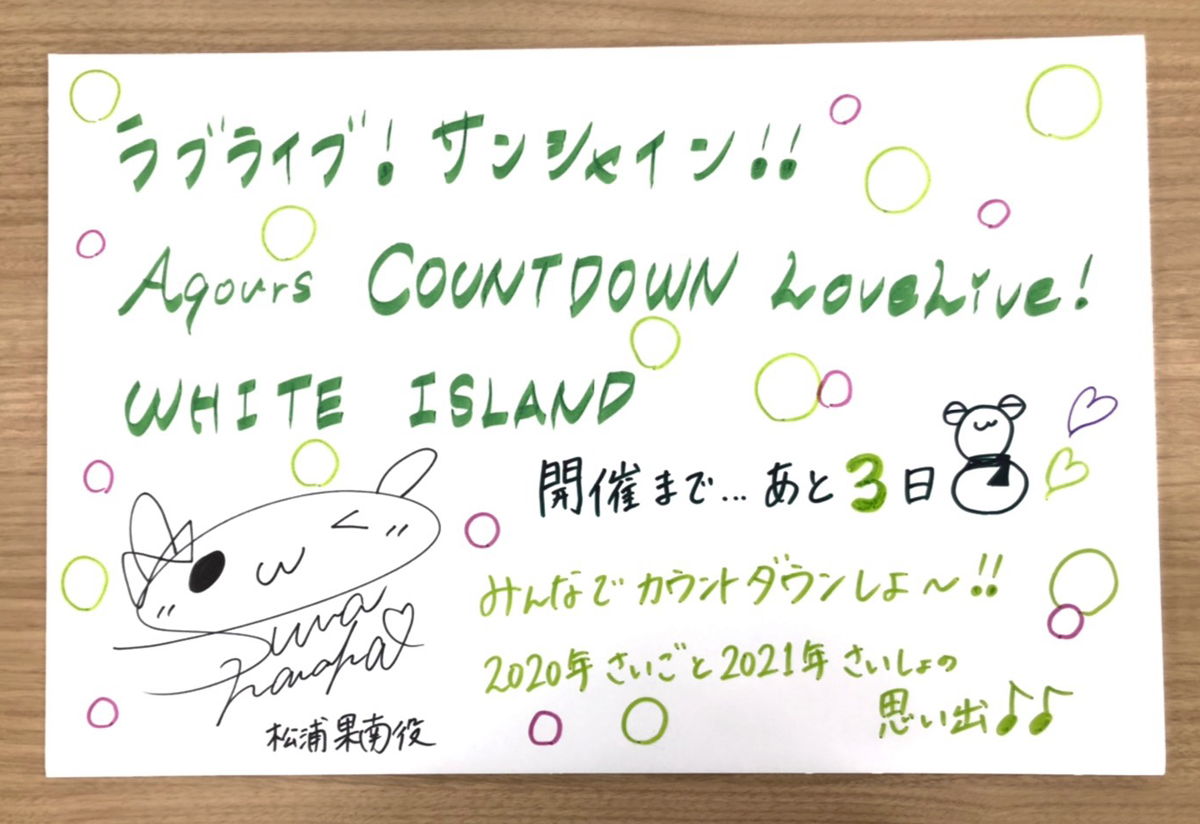 ラブライブ！サンシャイン!!
Aqours COUNTDOWN LoveLive!
WHITE ISLAND
開催まで...あと3日
みんなでカウントダウンしよ〜!!
2020年さいごと2021年さいしょの
思い出♪♪
Suwa
Nanaka
松浦果南役